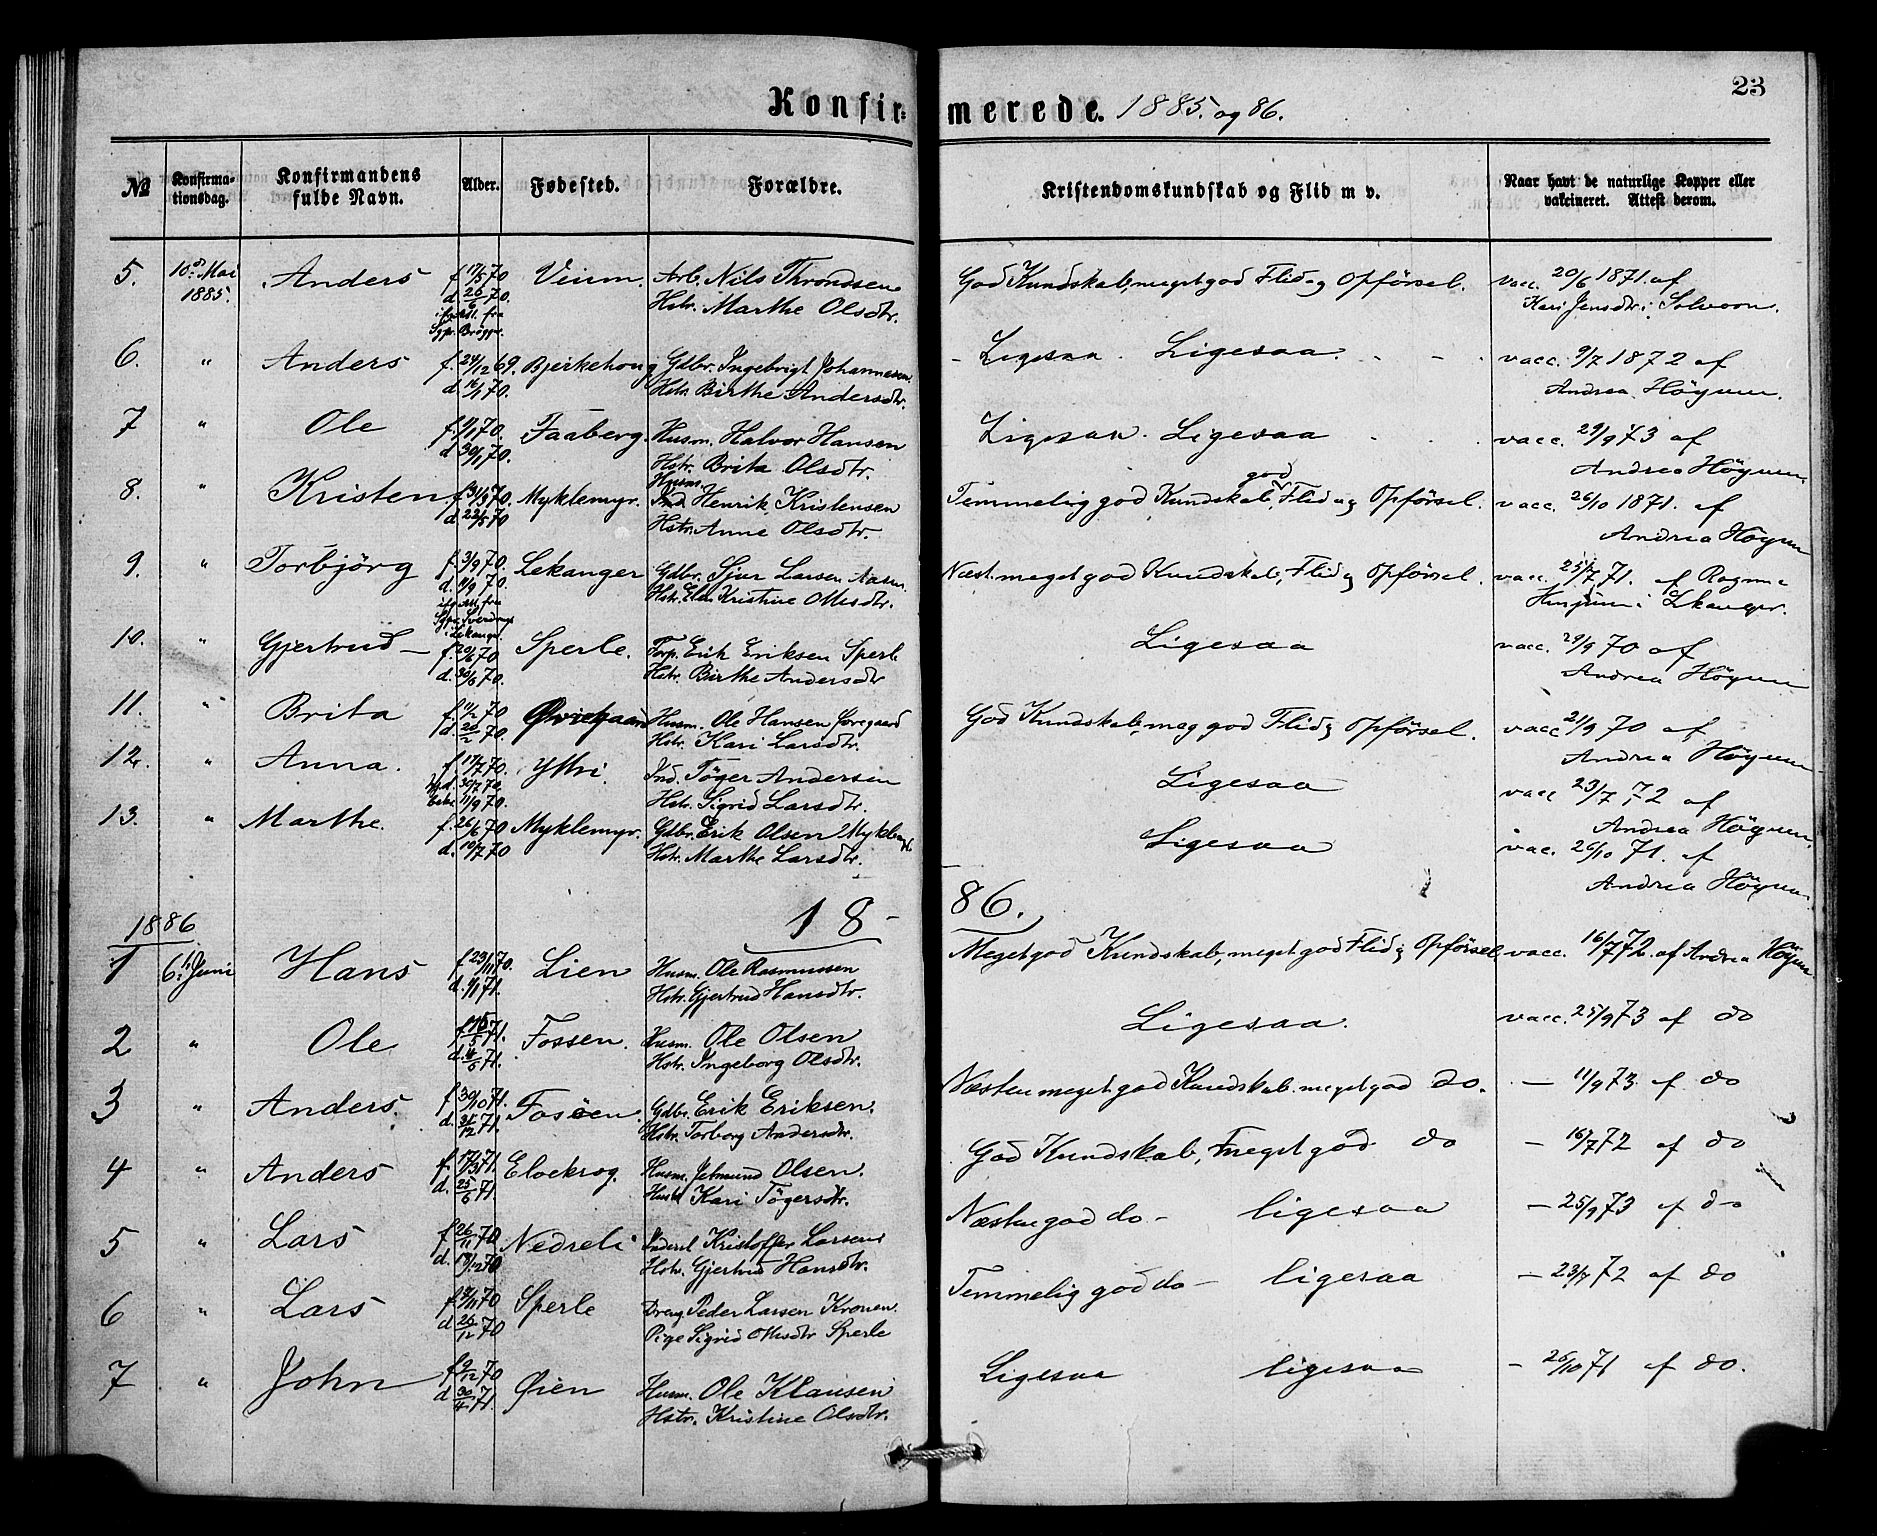 23
Konfir- merede. 1885. og 86.
№ Konfirma-tionsdag. Konfirmandens fulde Navn. Alder. Fødested. Forældre. Kristendomskundskab og Flid m v. Naar havt de naturlige Kopper eller vakcineret. Attest derom.
5. 10de Mai 1885. Anders f. 17/5 70 d. 26/6 70. Veium. Arb. Nils Throndsen God Kundskab, meget god Flid og Opførsel. vacc. 20/6 1871. af
Hstr. Marthe Olsdtr. Kari Jensdtr. i Solvorn.
6. " Anders f. 24/12 69. d. 16/1 70. Bjerkehoug Gdbr. Ingebrigt Johannesen - Ligesaa. Ligesaa. vacc. 9/7 1872 af
Hstr. Birthe Andersdtr. Andrea Høyum.
7 " Ole d. 30/1 70. Faaberg. Husm. Halvor Hansen Ligesaa. Ligesaa vacc. 29/9 73 af
Hstr. Brita Olsdtr. Andrea Høyum.
8. " Kristen f. 31/3 70. d. 22/5 70 Myklemyr. Husm. Henrik Kristensen Temmelig god Kundskab, god Flid og Opførsel. vacc. 26/10 1871. af
Hstr. Anne Olsdtr. Andrea Høyum
9. " Torbjörg f. 3/9 70. d. 11/9 70. Lekanger Gdbr. Sjur Larsen Næst. meget god Kundskab, Flid og Opførsel. vacc. 25/7 71. af Ragna
Hstr. Kristine Olsdtr. Husjum i Lekanger.
10. " Gjertrud f. 20/6 70 d. 30/6 70. Sperle. Torp. Erik Eriksen Sperle Ligesaa vacc. 29/9 70 af
Hstr. Birthe Andersdtr Andrea Høyum
11. " Brita f. 11/2 70 d. 20/2 70. Husm. Ole Hansen God Kundskab, meg god Flid og Opførsel. vacc 21/9 70 af
Hstr. Kari Larsdtr. Andrea Høyum
12. " Anna. f. 17/7 70. Yttri. Ind. Töger Andersen Ligesaa vacc 23/7 72 af
Hstr. Sigrid Larsdtr. Andrea Høyum
13. " Marthe. f. 26/6 70 d. 10/7 70 Myklemyr. Gdbr. Erik Olsen Myklemyr Ligesaa vac. 26/10 71. af
Hstr. Marthe Larsdtr. Andrea Høyum
1886 18- 86.
1 6te Juni Hans f. 23/11 70. d. 1/1 71. Lien Husm. Ole Rasmussen Meget god Kundskab, meget god Flid og Opførsel vacc. 16/7 72. af Andrea Høyum
Hstr. Gjertrud Hansdtr.
2 " Ole Fossen. Husm. Ole Olsen Ligesaa. vacc. 25/9 73 af do
Hstr. Ingeborg Olsdtr.
3 " Anders. f. 30/10 71. d. 31/12 71. Fossen. Gdbr. Erik Eriksen. Næsten meget god Kundskab. meget god do. - 11/9 73. af do
Hstr. Torborg Andersdtr.
4 " Anders f. 17/3 71. d. 25/6 71. Elvekrog. Husm. Jetmund Olsen. God Kundskab, meget god do - 16/7 72 af do
Kari Tögersdtr.
5 " Lars f. 26/11 70 d. 19/12 70 Nedreli Inderst Kristoffer Larsen Næsten god do - ligesaa - 25/9 73 af do
Hstr. Gjertrud Hansdtr.
6 " Lars d. 26/12 70 Sperle Dreng Peder Larsen Kronen. Temmelig god do - ligesaa - 23/7 72 af do
Pige Sigrid Olsdtr Sperle
7 " John f. 9/12 70 d. 30/4 71. Øien Husm. Ole Klausen Ligesaa ligesaa - 26/10 71 af do.
Hstr. Kristine Olsdtr.